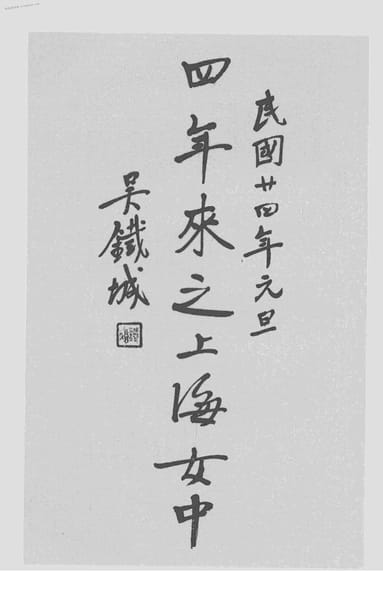 民國廿四年元旦
四年來之上海女中
吳鐵城